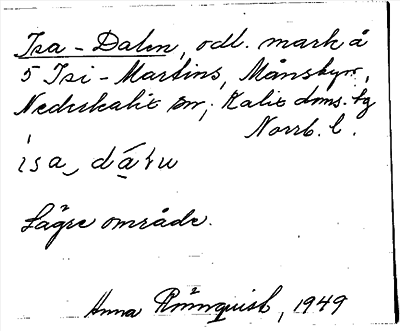 Isa-Dalen, odl. mark å
5 Isi-Martins, Månsbyn,
Nederkalix sn, Kalix dms. tg
Norrb. l.
isa, dáḷu
Lägre område.
Anna Rönnquist, 1949